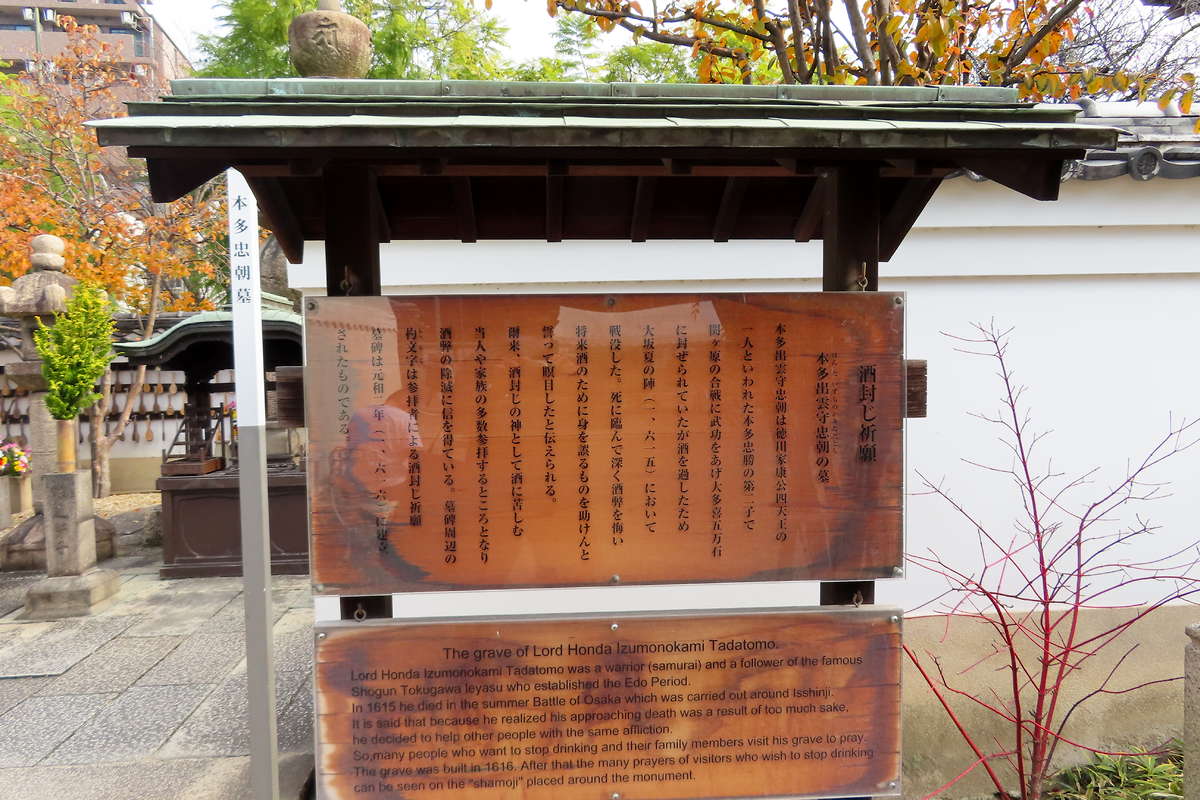 本多忠朝墓
酒封じ祈願
本多出雲守忠朝の墓
本多出雲守忠朝は徳川家康公四天王の
一人といわれた本多忠勝の第二子で
関ヶ原の合戦に武功をあげ大多喜五万石
に封ぜられていたが酒を過したため
大坂夏の陣（一、六一五）において
戦没した。死に臨んで深く酒弊を悔い
将来酒のために身を誤るものを助けんと
誓って瞑目したと伝えられる。
爾来、酒封じの神として酒に苦しむ
当人や家族の多数参拝するところとなり
酒弊の除滅に信を得ている。墓碑周辺の
杓文字は参拝者による酒封じ祈願
墓碑は元和二年（一、六一六）に建立
されたものである。
The grave of Lord Honda Izumonokami Tadatomo.
Lord Honda Izumonokami Tadatomo was a warrior (samurai) and a follower of the famous
Shogun Tokugawa Ieyasu who established the Edo Period.
In 1615 he died in the summer Battle of Osaka which was carried out around Isshinji.
It is said that because he realized his approaching death was a result of too much sake,
he decided to help other people with the same affliction.
So,many people who want to stop drinking and their family members visit his grave to pray.
The grave was built in 1616. After that the many prayers of visitors who wish to stop drinking
can be seen on the "shamoji" placed around the monument.